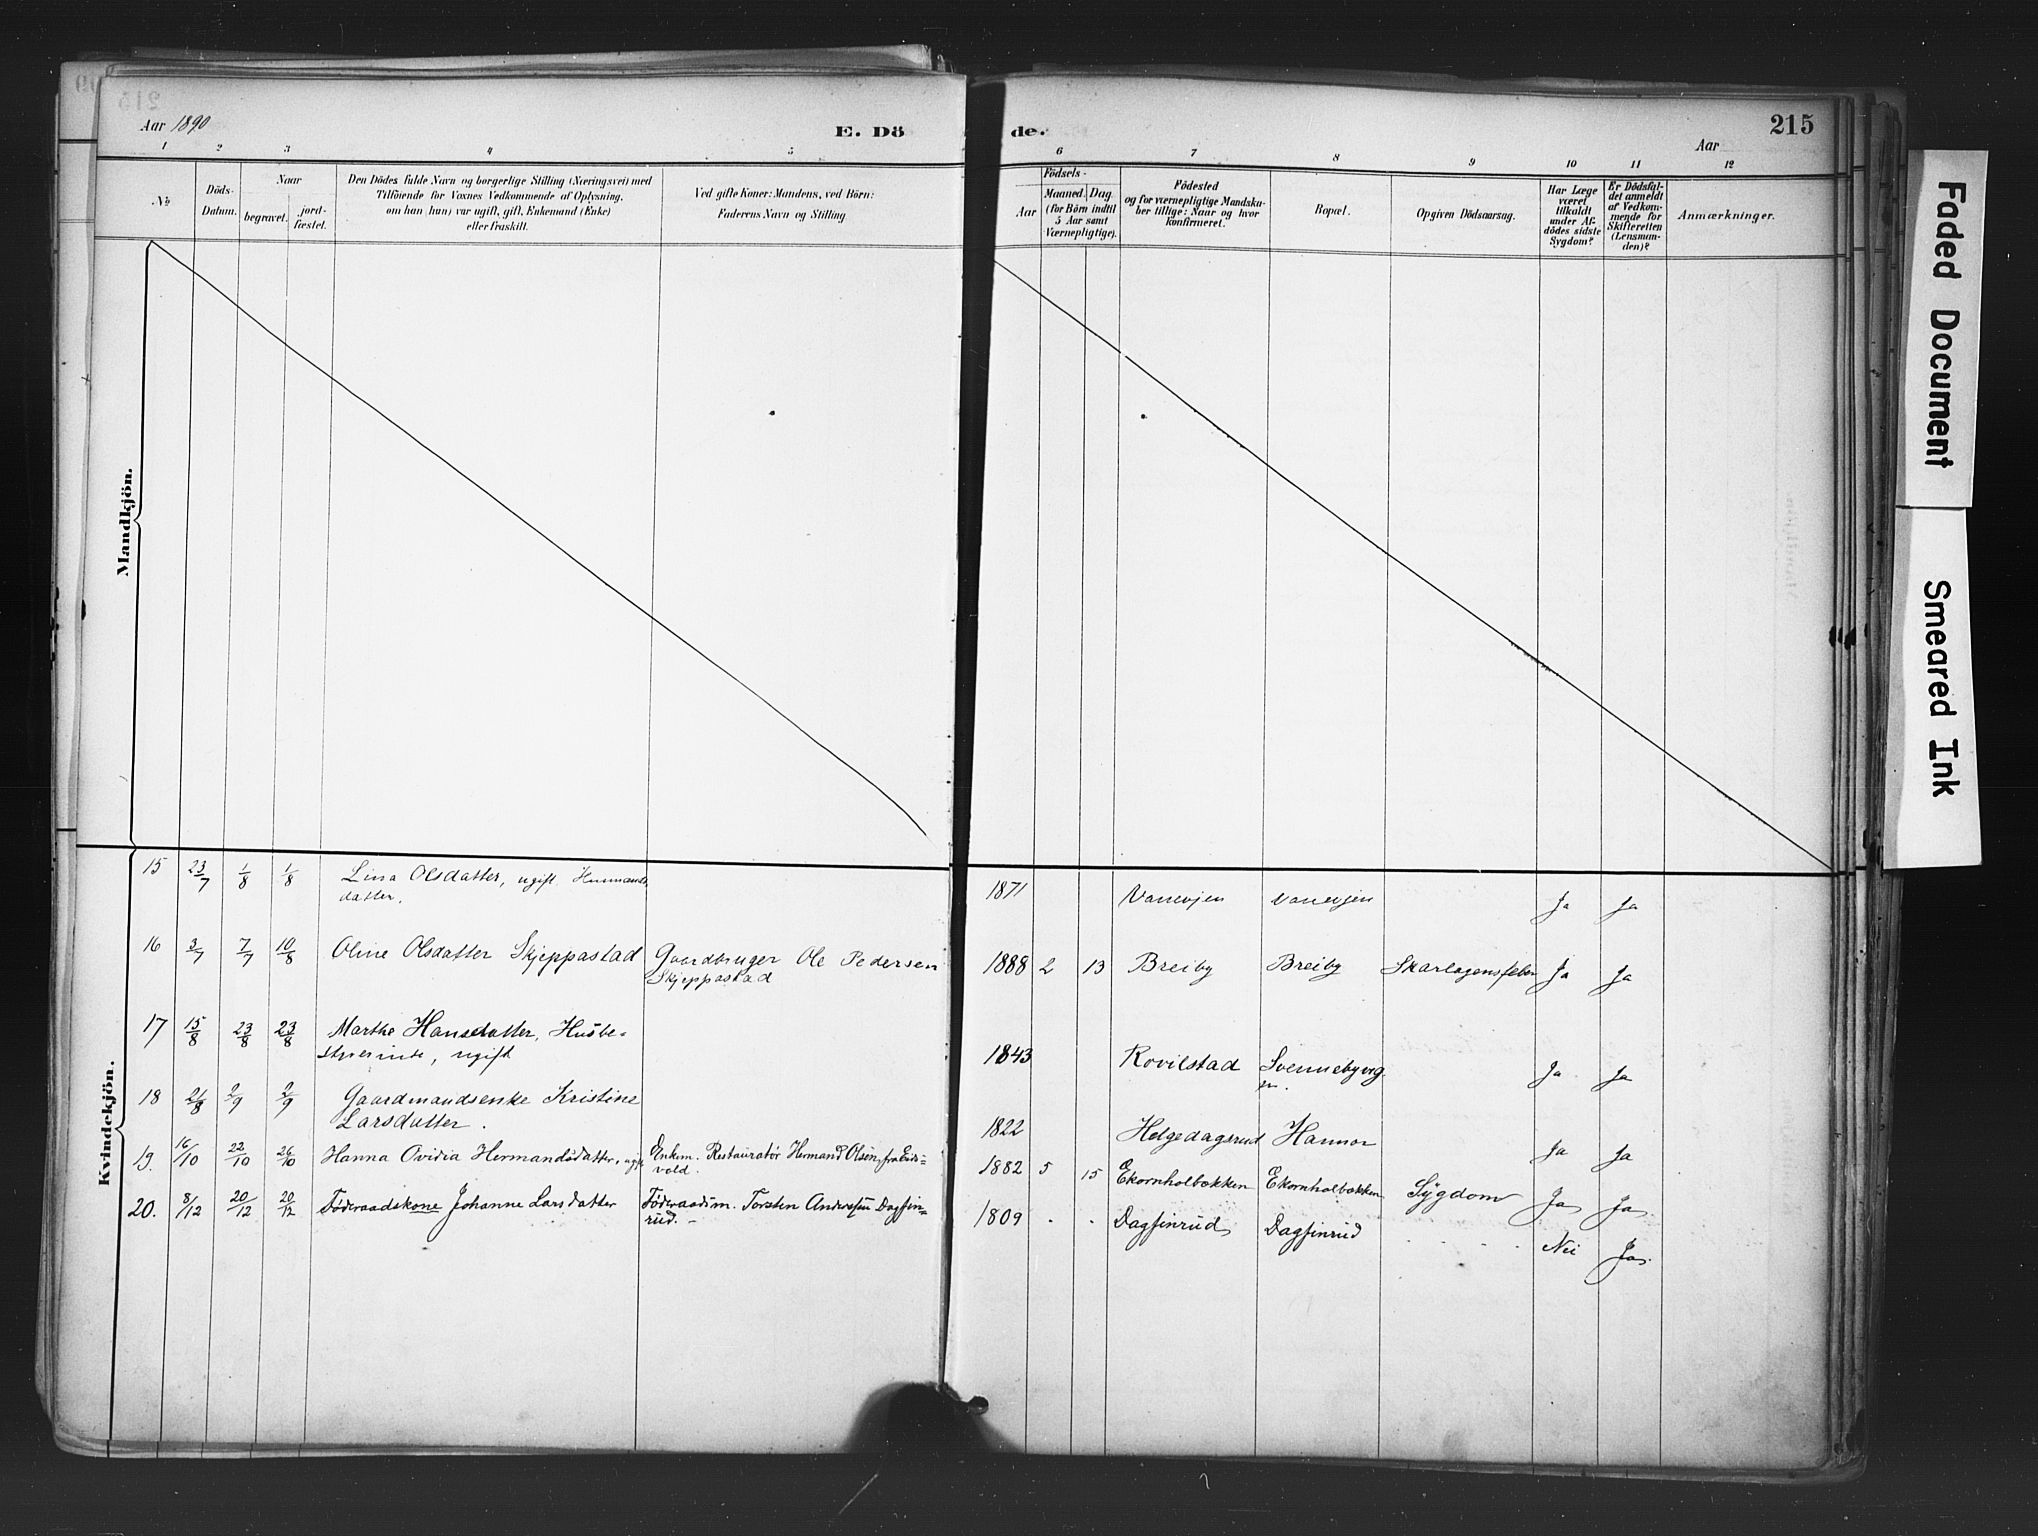 215
Aar 1890
E. Dö
de.
Aar
1 2 3 4 5
6 7 8 9 10 11 12
№
Döds-
Datum.
Naar
begravet.
jord-
fæstet.
Den Dödes fulde Navn og borgerlige Stilling (Næringsvei) med
Tilföiende for Voxnes Vedkommende af Oplysning,
om han (hun) var ugift, gift, Enkemand (Enke)
eller fraskilt.
Ved gifte Koner: Mandens, ved Börn:
Faderens Navn og Stilling
Födsels-
Aar
Maaned. Dag.
(for Börn indtil
5 Aar samt
Værnepligtige).
Födested
og for værnepligtige Mandska-
ber tillige: Naar og hvor
konfirmeret.
Bopæl.
Opgiven Dödsaarsag.
Har Læge
været
tilkaldt
under Af-
dödes sidste
Sygdom?
Er Dödsfal-
det anmeldt
af Vedkom-
mende for
Skifteretten
(Lensman-
den)?
Anmærkninger.
Mandkjön.
Kvindekjön.
15 23/7 1/8 1/8 Lina Olsdatter, ugift, Husmands
datter.
1871 Vanevjen Vanevjen Ja Ja
16 3/7 7/7 10/8 Oline Olsdatter Skjeppastad Gaardbruger Ole Pedersen
Skjeppastad
1888 2 13 Breiby Breiby Skarlagensfeber Ja Ja
17 15/8 23/8 23/8 Marthe Hansdatter, Husbe-
styrerinde, ugift
1843 Rovilstad Svennebyeig
Ja Ja
18 21/8 2/9 2/9 Gaardmandsenke Kristine
Larsdatter.
1822 Helgedagsrud Hannor Ja Ja
19. 16/10 22/10 26/10 Hanna Ovidia Hermandsdatter, ugift Enkem. Restauratør Hermand Olsen, fra Eids-
vold.
1882 5 15 Ekornholbækken Ekornholbækken Sygdom Ja Ja
20. 8/12 20/12 20/12 Föderaadskone Johanne Larsdatter Föderaadsm. Torsten Anderssen Dagfin-
rud.
1809 Dagfinrud Dagfinrud Nei Ja
Faded Document
Smeared Ink